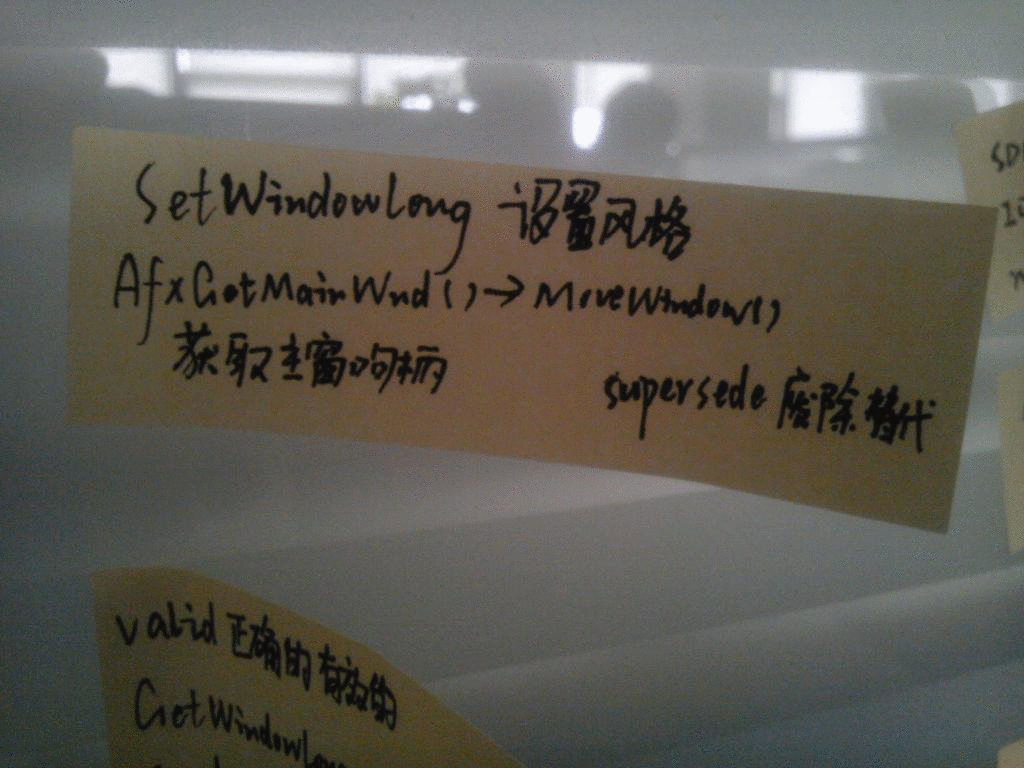 SetWindowLong 设置风格
AfxGetMainWnd()→MoveWindow()
获取主窗口句柄
supersede 废除替代
valid 正确的 有效的
GetWindowLon
SD